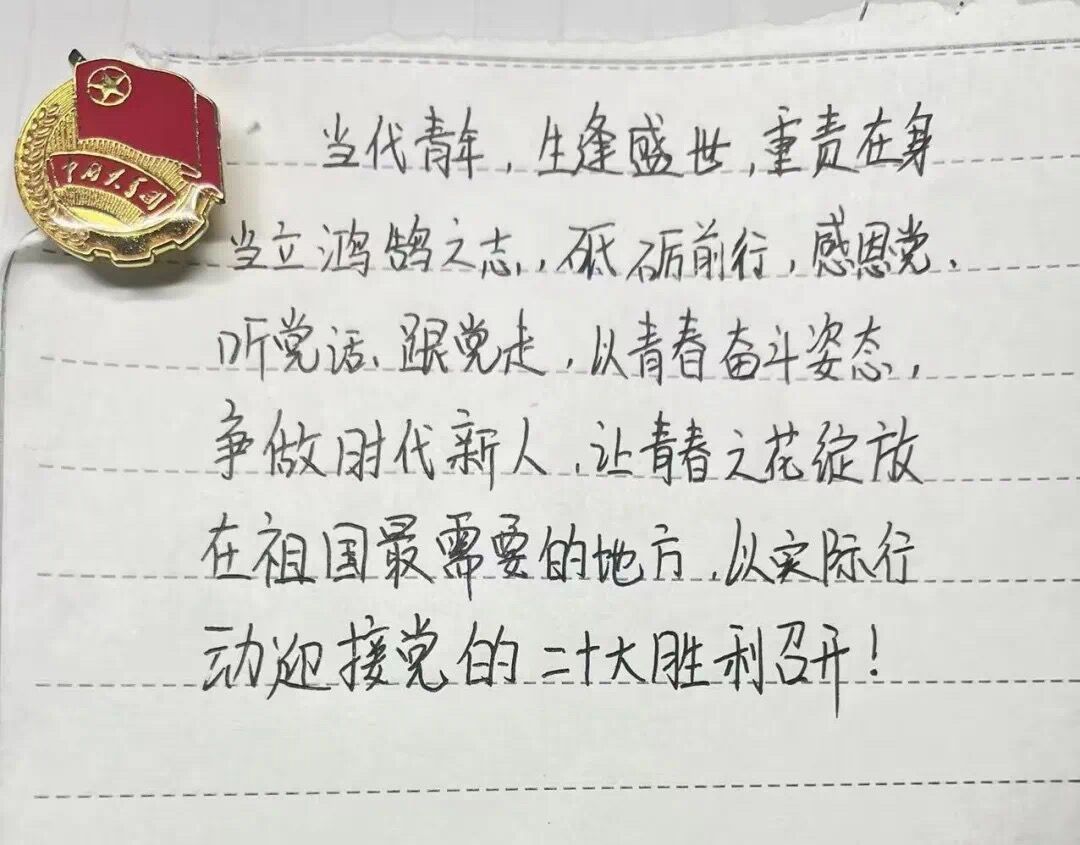 中国共青团
当代青年，生逢盛世，重责在身
当立鸿鹄之志，砥砺前行，感恩党、
听党话、跟党走，以青春奋斗姿态，
争做时代新人，让青春之花绽放
在祖国最需要的地方，以实际行
动迎接党的二十大胜利召开！